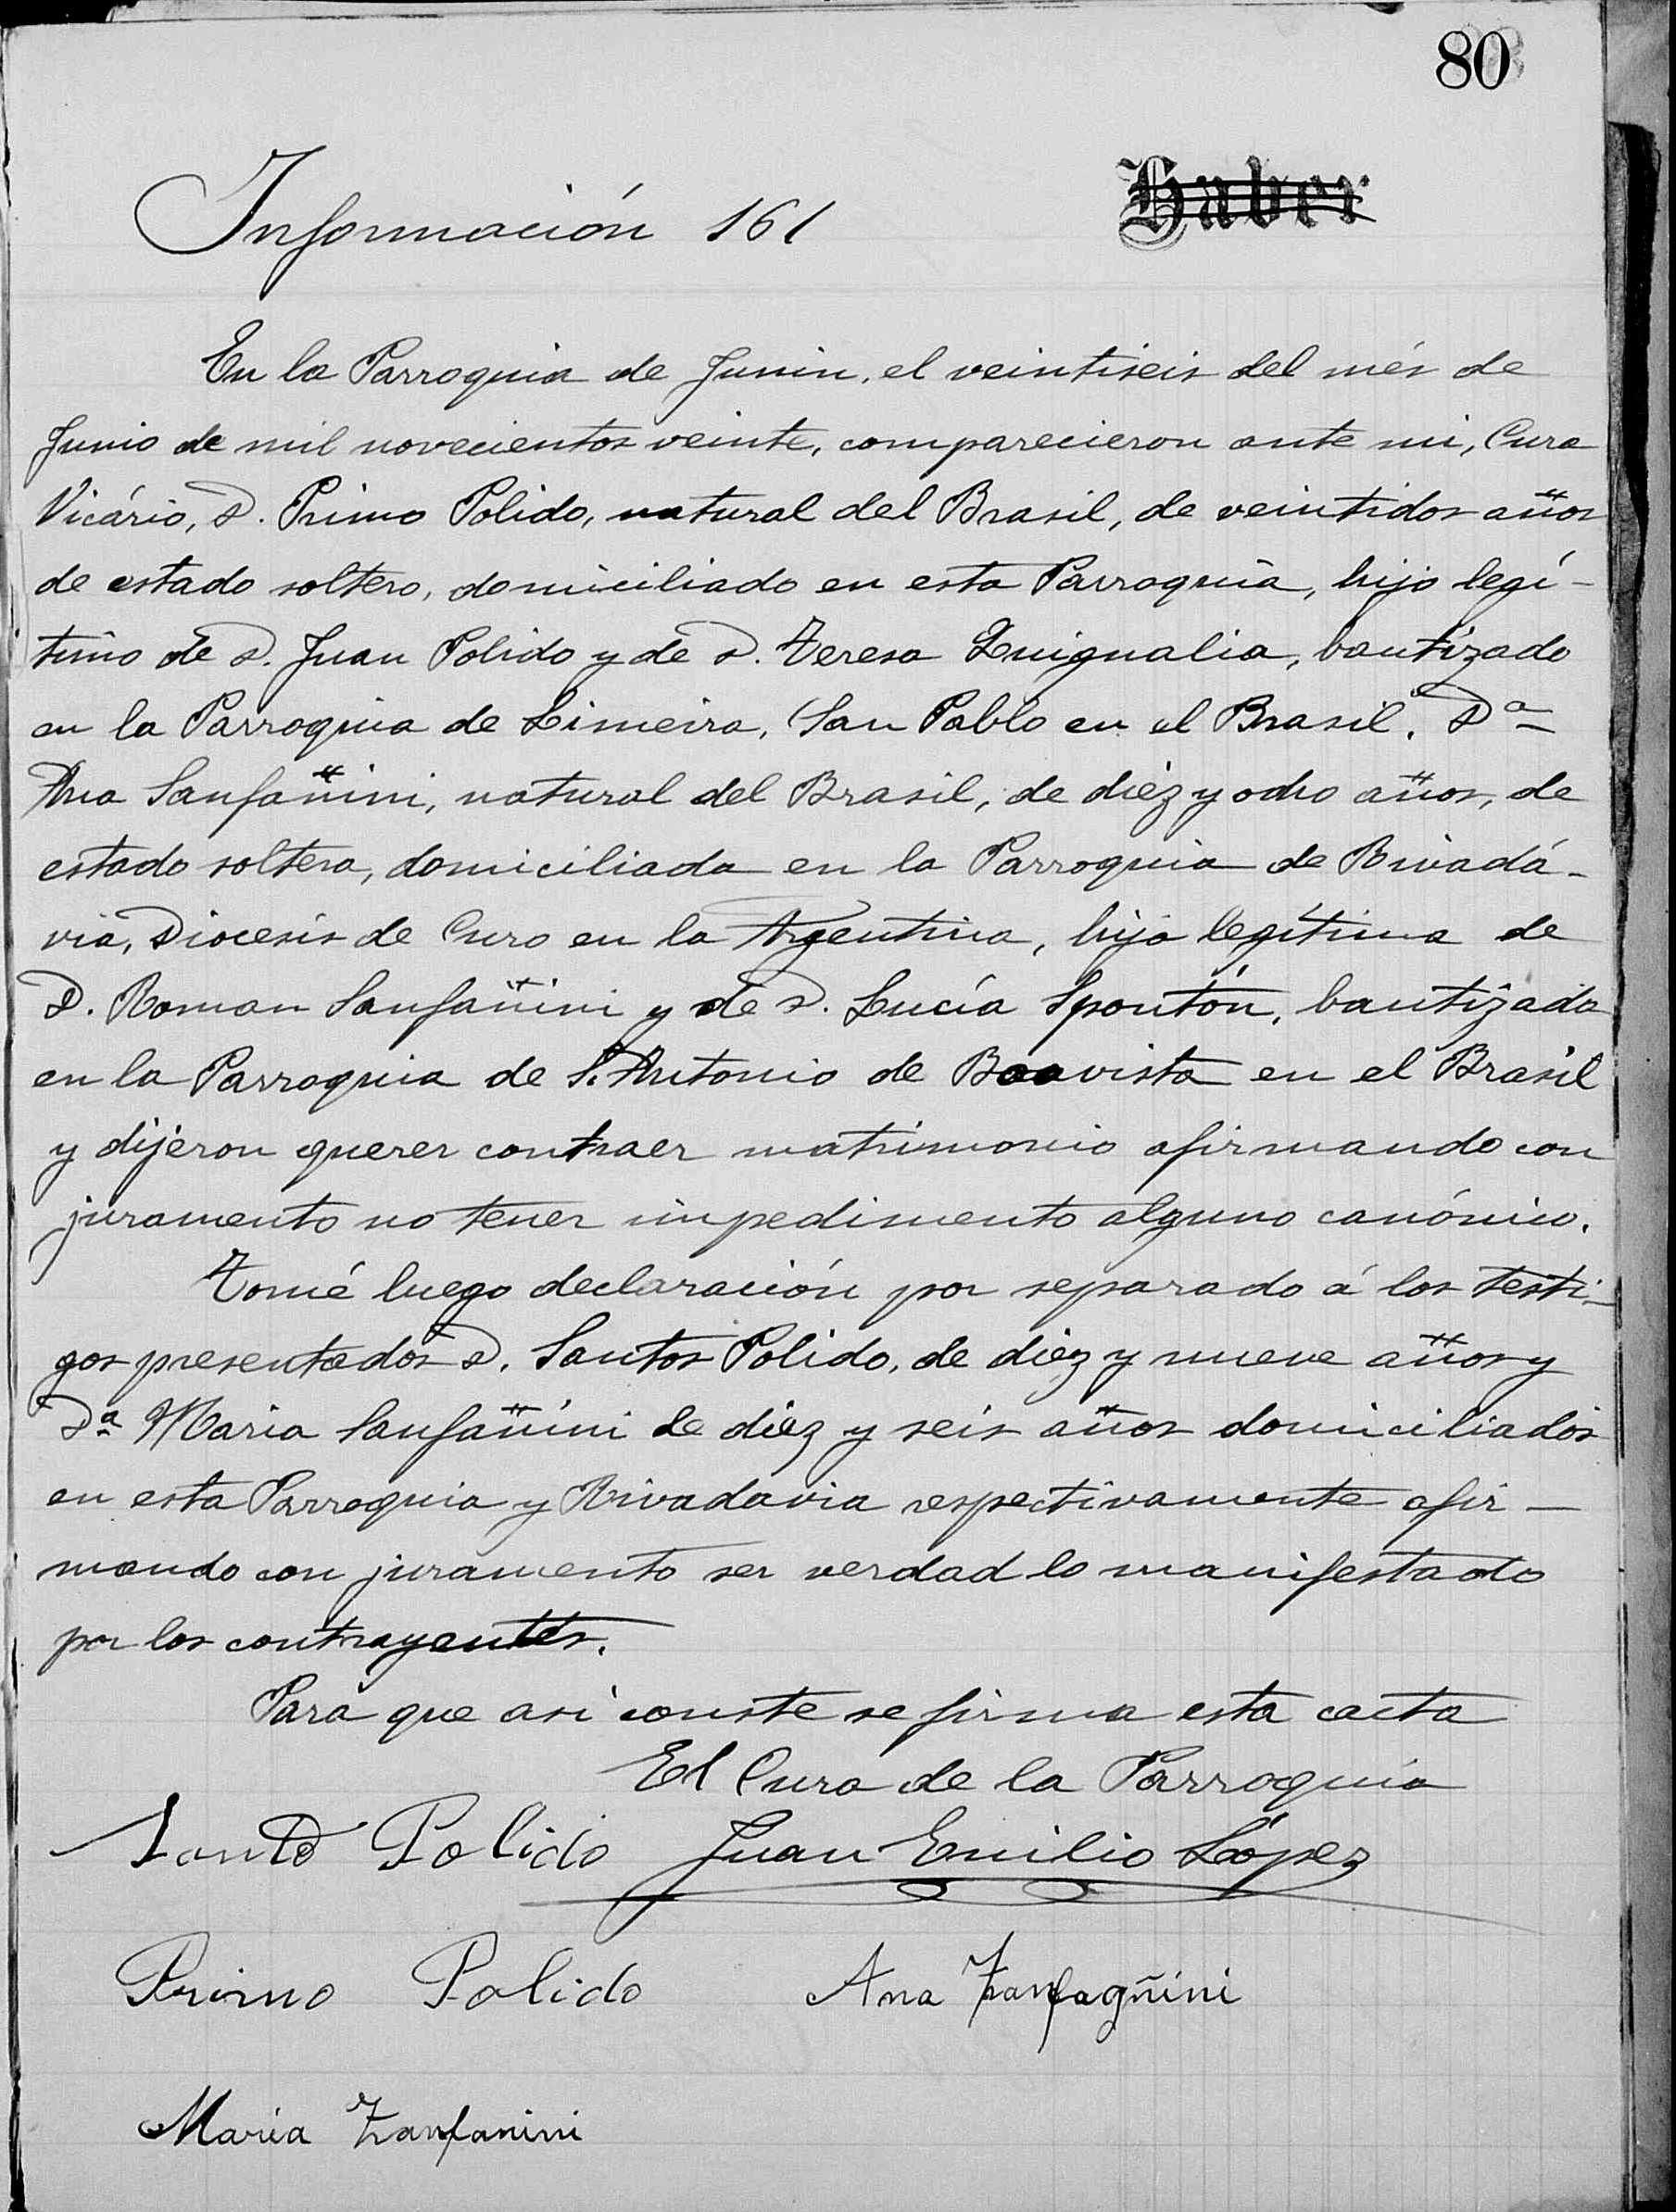 80
Información 161
Haber
En la Parroquia de Junin, el veintiseis del més de
Junio de mil novecientos veinte, comparecieron ante mi, Cura
Vicário, D. Primo Polido, natural del Brasil, de veintidos años
de estado soltero, domiciliado en esta Parroquia, hijo legí-
timo de D. Juan Polido y de D. Teresa Quignalia, bautizado
en la Parroquia de Limeira, San Pablo en el Brasil. Dª
Ana Sanfañini, natural del Brasil, de diéz y ocho años, de
estado soltera, domiciliada en la Parroquia de Rivadá-
via, Diocesis de Cuyo en la Argentina, hija legítima de
D. Roman Sanfañini y de D. Lucía Spontón, bautizada
en la Parroquia de S. Antonio de Boavista en el Brasil
y dijeron querer contraer matrimonio afirmando con
juramento no tener impedimento alguno canónico.
Tomé luego declaración por separado á los testi-
gos presentados D. Santos Polido, de diez y nueve años y
Dª Maria Sanfañini de diez y seis años domiciliados
en esta Parroquia y Rivadavia respectivamente afir-
mando con juramento ser verdad lo manifestado
por los contrayentes.
Para que asi conste se firma esta acta
El Cura de la Parroquia
Santo Polido Juan Emilio López
Primo Polido Ana Zanfagñini
Maria Zanfanini